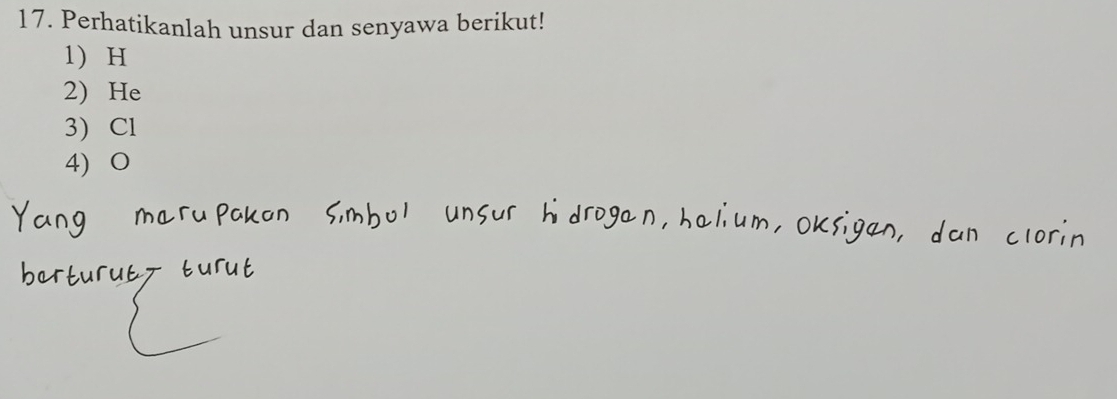 17. Perhatikanlah unsur dan senyawa berikut!
1) H
2) He
3) Cl
4) O
Yang merupakan simbol unsur hidrogen, helium, oksigen, dan clorin
berturut-turut